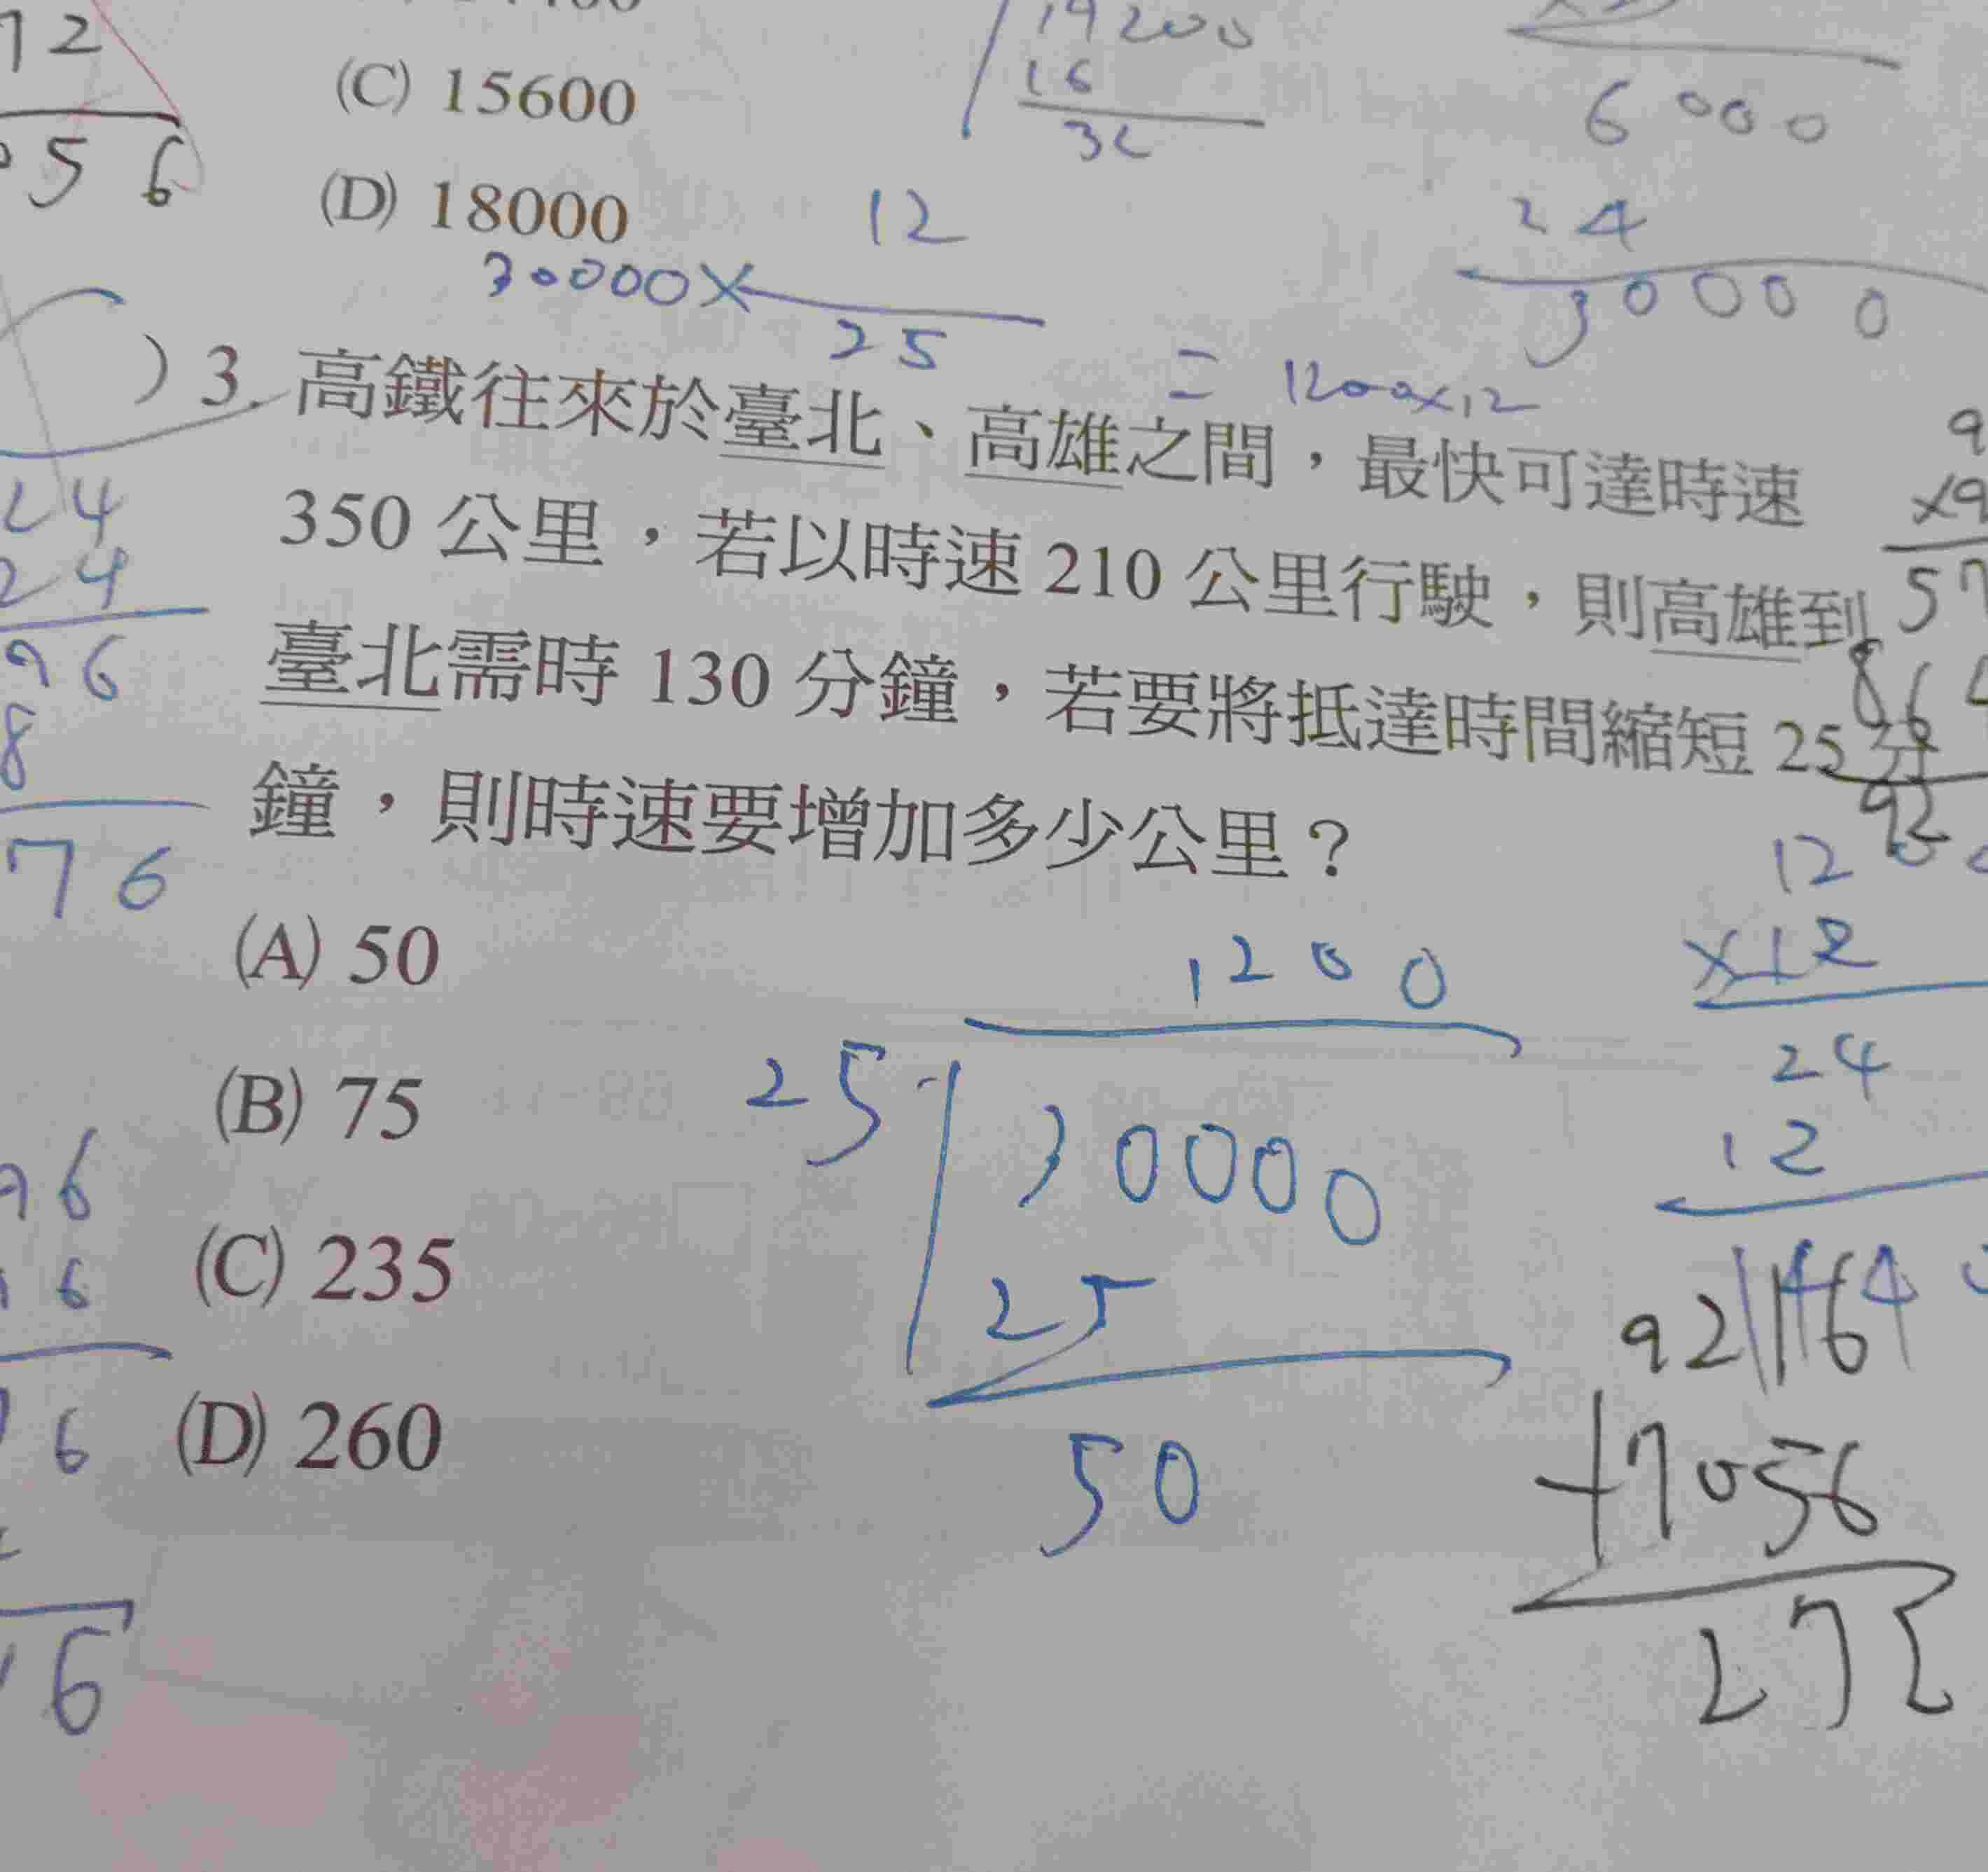 72
056
(C) 15600
(D) 18000
19200
16
32
6000
24
30000
30000×12/25
= 1200×12
)3. 高鐵往來於臺北、高雄之間，最快可達時速
350 公里，若以時速 210 公里行駛，則高雄到
臺北需時 130 分鐘，若要將抵達時間縮短 25 分
鐘，則時速要增加多少公里？
(A) 50
(B) 75
(C) 235
(D) 260
24
24
96
8
76
96
6
6
16
1200
25
30000
25
50
×12
24
12
92
+7056